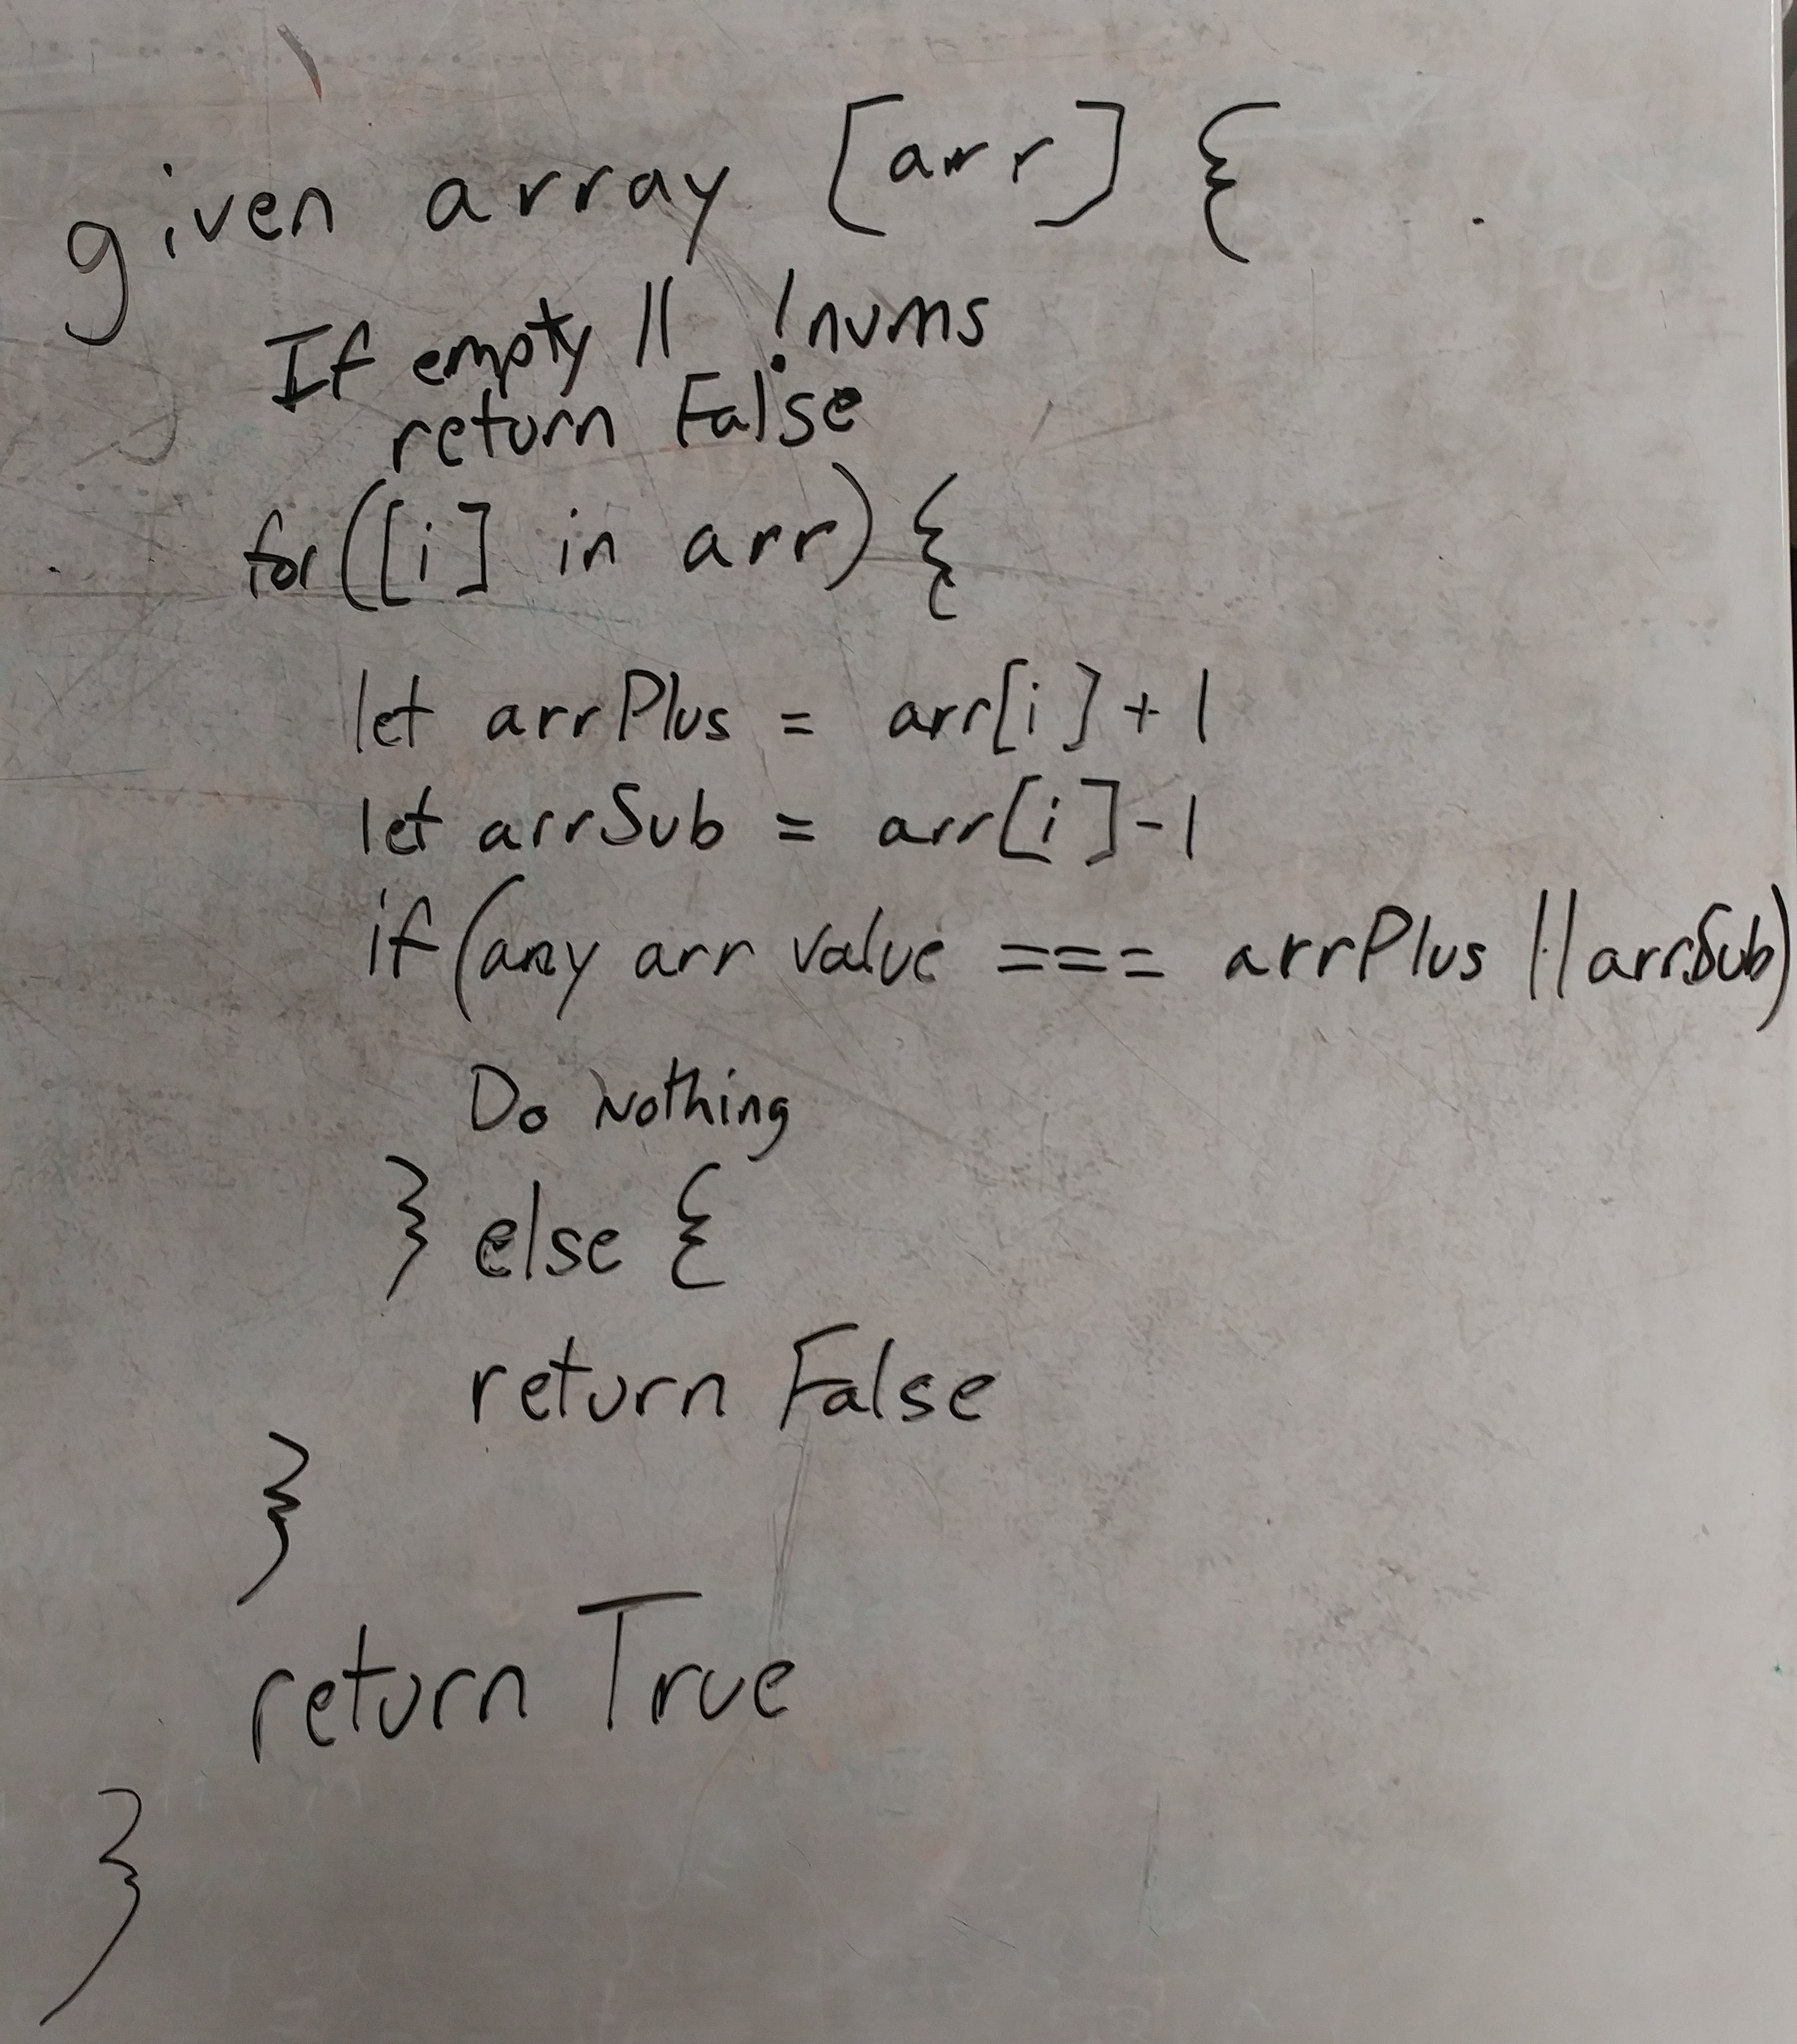 given array [arr] {
If empty || !nums
return False
for([i] in arr) {
let arrPlus = arr[i]+1
let arrSub = arr[i]-1
if(any arr value === arrPlus || arrSub)
Do Nothing
} else {
return False
}
return True
}